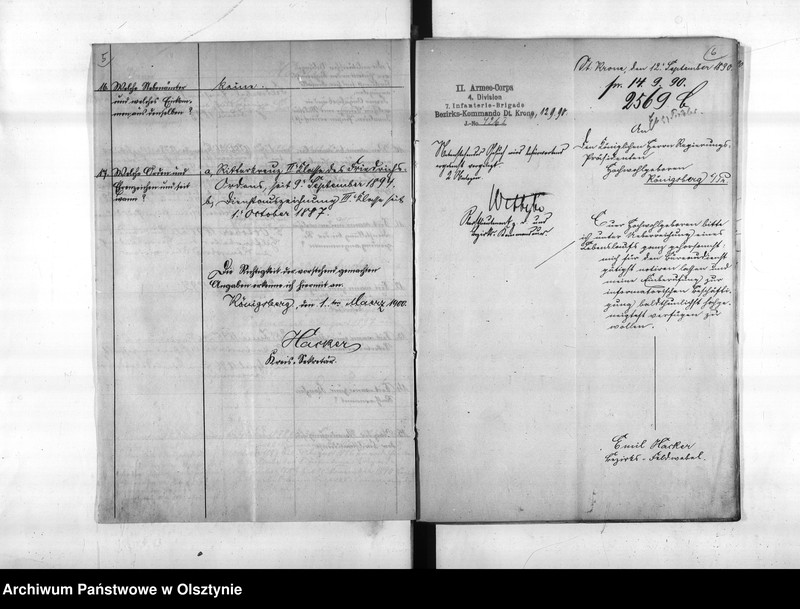 5
16. Welche Nebenämter
und welches Einkommen
aus denselben?
keine.
17. Welche Orden und
Ehrenzeichen und seit
wann?
a, Ritterkreuz IIr Klasse des Friedrichs-
Ordens, seit 9. September 1894.
b, Dienstauszeichnung IIr Klasse seit
1. October 1887.
Die Richtigkeit der vorstehend gemachten
Angaben erkenne ich hiermit an.
Königsberg, den 1. ten Maerz 1900.
Hacker
Kreis-Sekretär.
6
II. Armee-Corps
4. Division
7. Infanterie-Brigade
Bezirks-Kommando Dt. Krone, 12.9.90.
J.-No.
Bezirks-Kommandeur
Dt. Krone, den 12. September 1890.
pr. 14. 9. 90.
2569 C
An
den Königlichen Herrn Regierungs-
Präsidenten
Hochwohlgeboren
Königsberg i/Pr.
Euer Hochwohlgeboren bitte
ich unter Ueberreichung eines
Lebenslaufs ganz gehorsamst:
mich für den Bureaudienst
gütigst notiren lassen und
meine Einberufung zur
informatorischen Beschäfti-
gung baldthunlichst hochge-
neigtest verfügen zu
wollen.
Emil Hacker
Bezirks-Feldwebel.
Archiwum Państwowe w Olsztynie